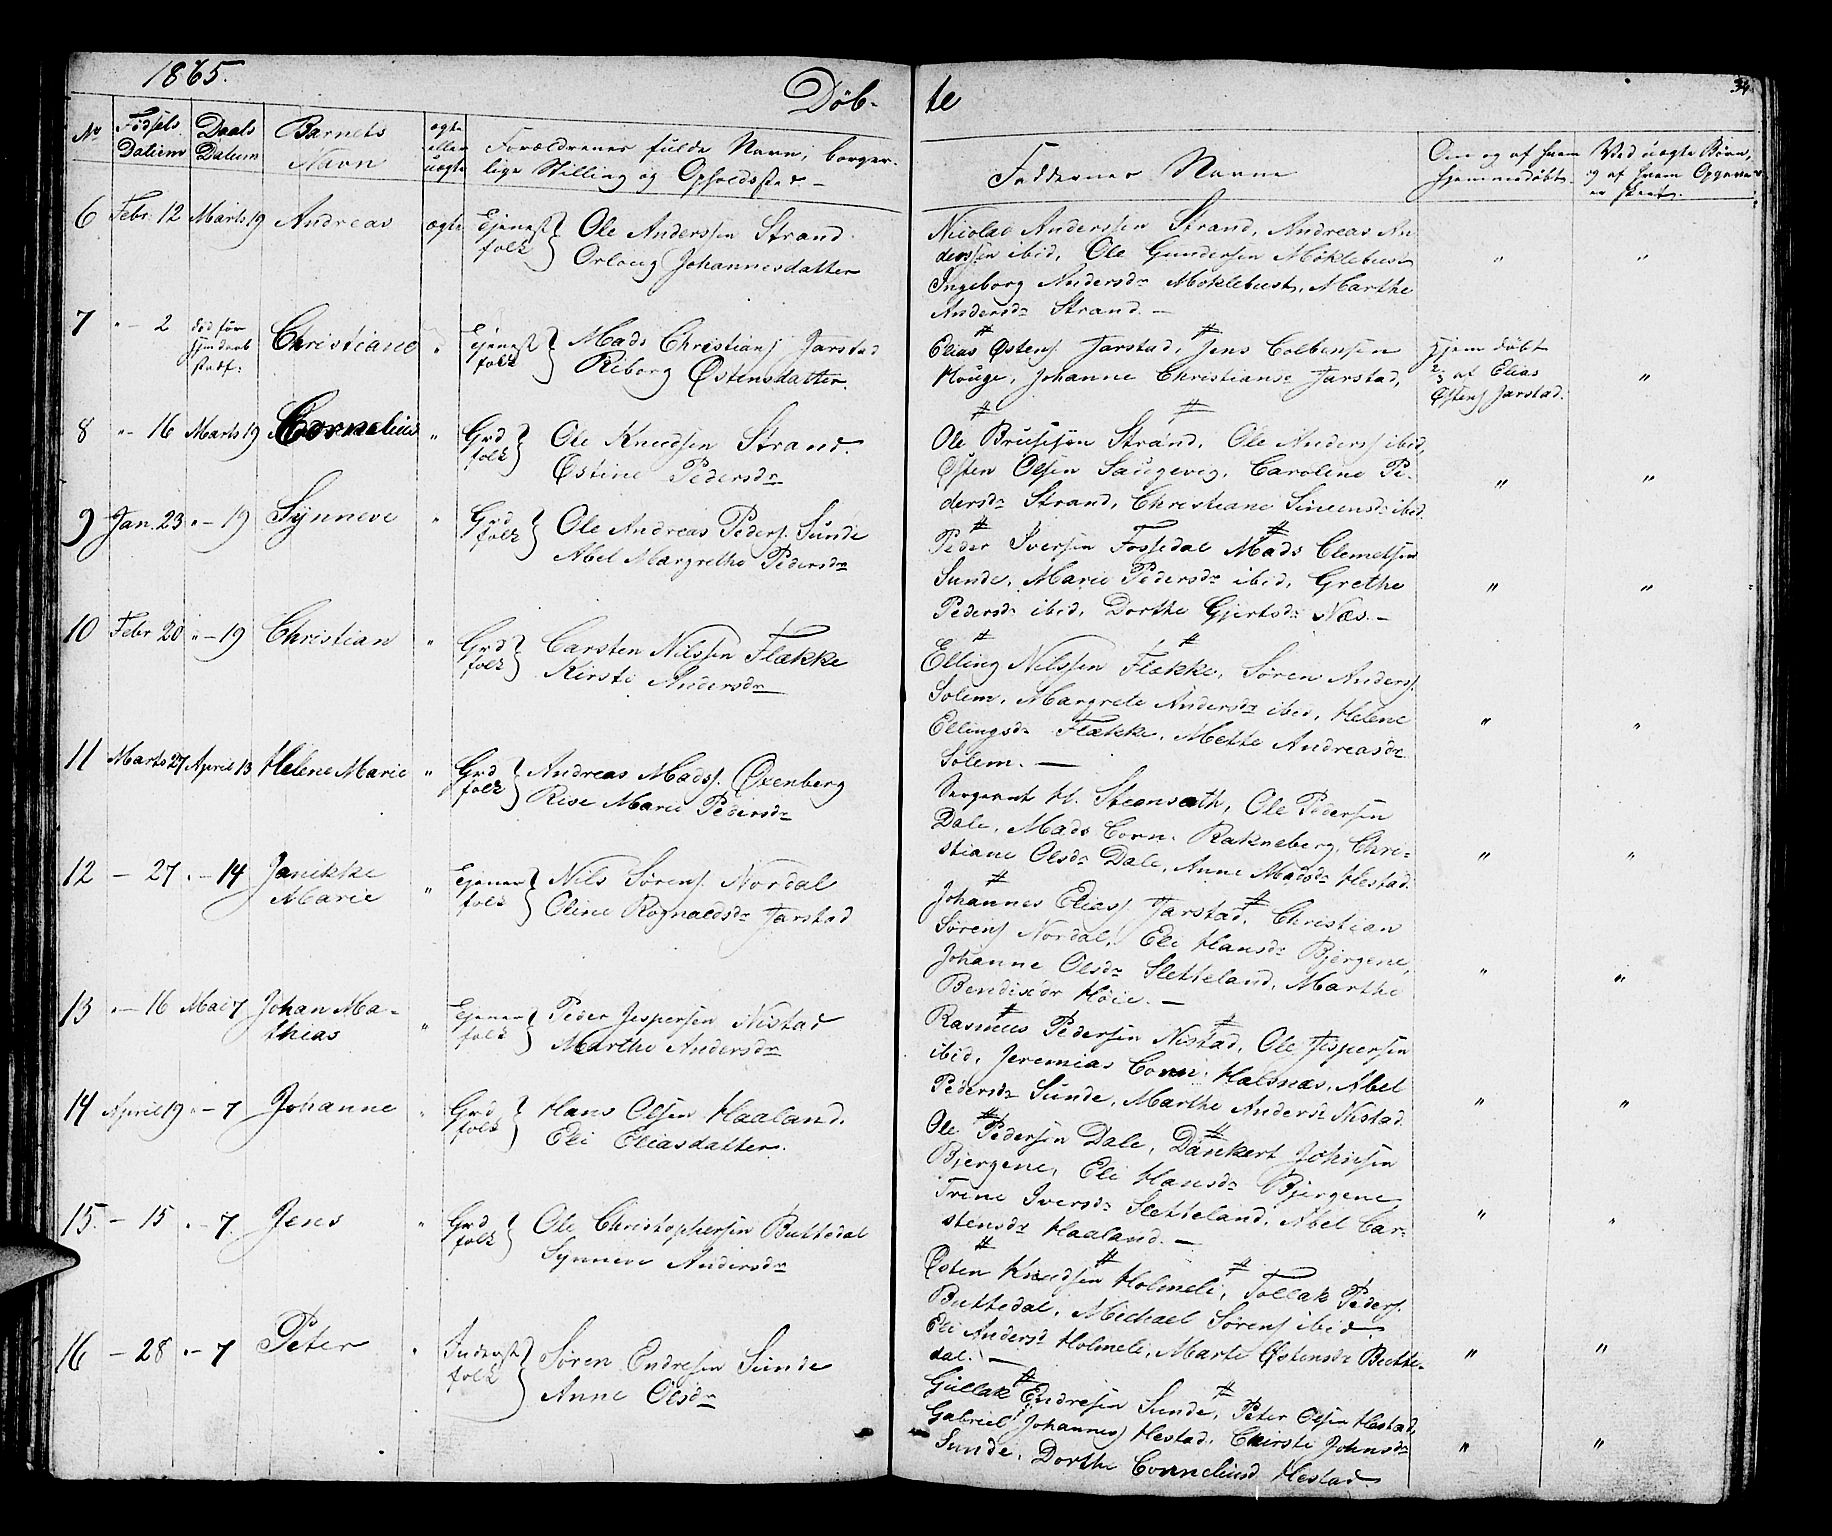 1865.
Døb-
te
34.
No
Fødsels Datum
Daabs Datum
Barnets Navn
ægte eller uægte
Forældrenes fulde Navn, borger-
lige Stilling og Opholdssted
Faddernes Navne
Om og af hvem
hjemmedøbt.
Ved uægte Børn,
og af hvem
er skeet.
6 Febr. 12 Marts 19 Andreas ægte
folk } Ole Anderssen Strand
Johannesdatter
Nicolai Anderssen Strand, Andreas An
derssen ibid, Ole Gundersen Möklebust
Ingeborg Andersdr Möklebust, Marthe
Andersdr Strand. —
" "
7 " - 2
Christiane "
folk } Mads Christians Jarstad
Riborg Østensdatter.
Elias Østens Jarstad, Jens Colbensen
Houge, Johanne Christiansd Jarstad,
Hjemdøbt
2/3 af Elias
Østens Jarstad.
"
8 " - 16 Marts 19 Cornelius "
Grd
folk } Ole Knudsen Strand.
Østine Pedersdr
Ole Strand, Ole Anders ibid,
Østen Olsen Saugevig, Caroline Pe-
dersdr Strand, Christiane Simensd ibid.
" "
9 Jan. 23 " - 19 Synneve "
Grd
folk } Ole Andreas Peders. Sunde
Abel Margrethe Pedersdr
Peder Iversen Fossedal Mads Clemetsen
Sunde, Marie Pedersdr ibid, Grethe
Pedersdr ibid, Dorthe Gjertsdr Næs. -
" "
10 Febr 20 " - 19 Christian "
Grd
folk } Carsten Nilssen Flække
Kirsti Andersdr
Elling Nilssen Flække, Søren Anders.
Solem, Margrete Andersdr ibid, Helene
Ellingsdr Flække, Mette Andreasdr
Solem. —
" "
11 Marts 27 April 13 Helene Marie "
Grd
folk } Andreas Madss. Oxenberg
Rise Marie Pedersdr
Sergeant H. Steensæth, Ole Pedersen
Dale, Mads Corn. Rakneberg, Chri-
stiane Olsdr Dale, Anne Madsdr Hestad.
" "
12 - 27 " - 14 Janikke
Marie "
folk } Nils Sørens. Nordal
Oline Rognaldsdr Jarstad
Johannes Elias Jarstad, Christian
Sørens Nordal, Eli Hansdr Bjergene,
Johanne Olsdr Sletteland, Marthe
Bendixdr Höie. —
" "
13 " - 16 Mai 7 Johan Ma-
thias "
folk } Peder Jespersen Nistad
Marthe Andersdr
Rasmus Pedersen Nistad, Ole Jespersen
ibid, Jeremias Corn. Halsnæs, Abel
Pedersdr Sunde, Marthe Andersd Nistad.
" "
14 April 19 " - 7 Johanne "
Grd
folk } Hans Olsen Haaland.
Eli Eliasdatter.
Ole Pedersen Dale, Dankert Johnsen
Bjergene, Eli Hansdr Bjergene
Trine Iversdr Sletteland, Abel Car-
stensdr Haaland. —
" "
15. - 15 " - 7. Jens "
Grd
folk } Ole Christophersen Buttedal
Synneve Andersdr
Østen Knudsen Holmeli, Tollak Peders.
Buttedal, Michael Sørens ibid.
Eli Andersd Holmeli, Marte Østensdr Butte-
dal. —
" "
16 - 28 " - 7 Peter "
folk } Søren Endresen Sunde
Anne Olsdr
Gullak Endresen Sunde, Peter Olsen Hestad,
Gabriel Johannes Hestad, Johnsdr
Sunde, Dorthe Corneliusd Hestad.
" "